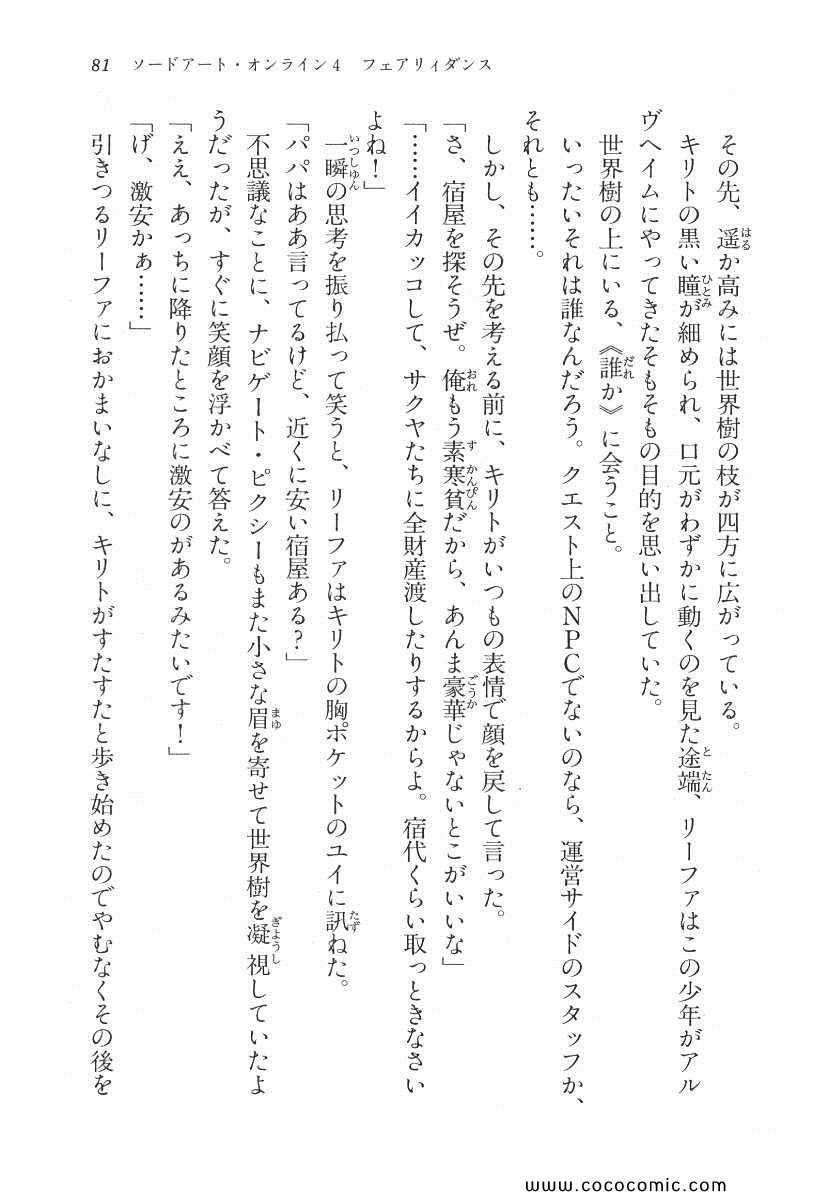 81 ソードアート・オンライン4 フェアリィダンス
その先、遥か高みには世界樹の枝が四方に広がっている。
キリトの黒い瞳が細められ、口元がわずかに動くのを見た途端、リーファはこの少年がアル
ヴヘイムにやってきたそもそもの目的を思い出していた。
世界樹の上にいる、《誰か》に会うこと。
いったいそれは誰なんだろう。クエスト上のNPCでないのなら、運営サイドのスタッフか、
それとも……。
しかし、その先を考える前に、キリトがいつもの表情で顔を戻して言った。
「さ、宿屋を探そうぜ。俺もう素寒貧だから、あんま豪華じゃないとこがいいな」
「……イイカッコして、サクヤたちに全財産渡したりするからよ。宿代くらい取っときなさい
よね！」
一瞬の思考を振り払って笑うと、リーファはキリトの胸ポケットのユイに訊ねた。
「パパはああ言ってるけど、近くに安い宿屋ある？」
不思議なことに、ナビゲート・ピクシーもまた小さな眉を寄せて世界樹を凝視していたよ
うだったが、すぐに笑顔を浮かべて答えた。
「ええ、あっちに降りたところに激安のがあるみたいです！」
「げ、激安かぁ……」
引きつるリーファにおかまいなしに、キリトがすたすたと歩き始めたのでやむなくその後を
www.cococomic.com